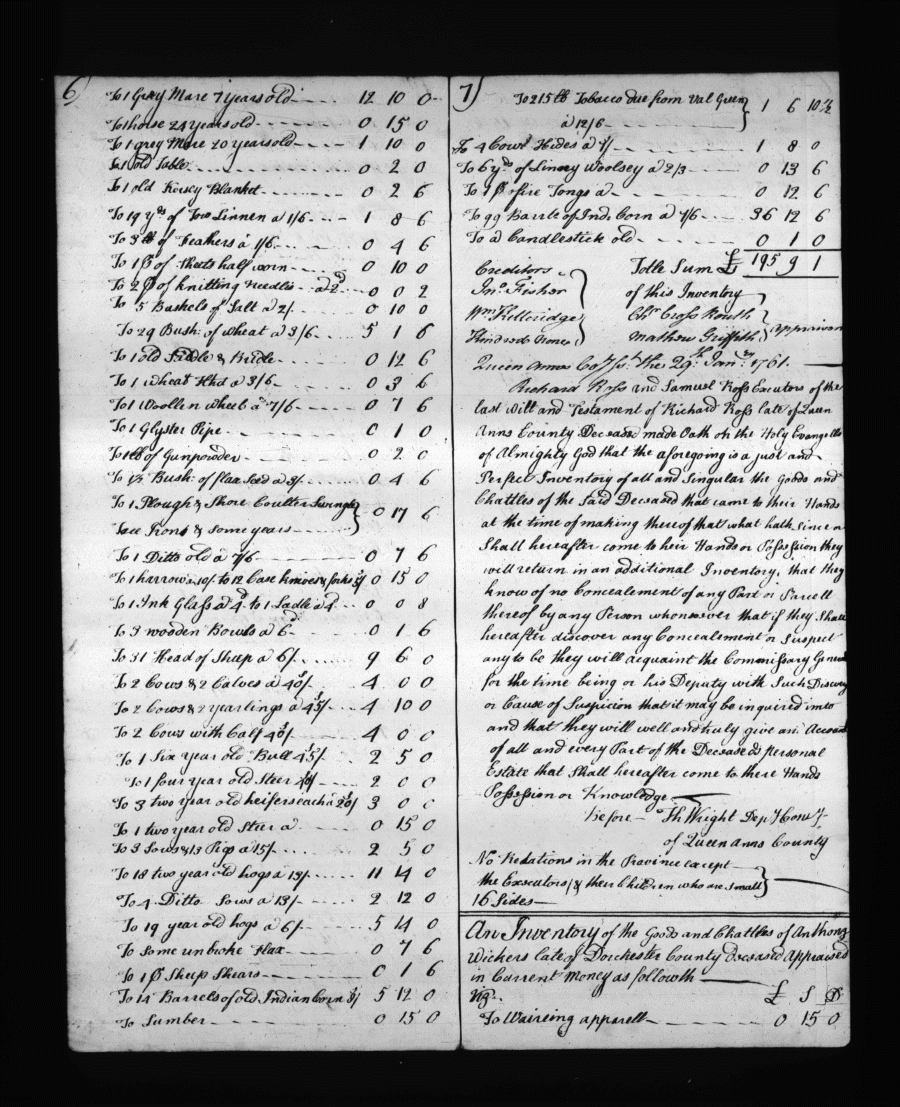 6)
To 1 Gray Mare 7 years old 12 10 0
To 1 horse 24 years old 0 15 0
To 1 grey Mare 20 years old 1 10 0
To 1 old Table 0 2 0
To 1 old Kersey Blanket 0 2 6
To 19 yds of Tow Linnen a 1/6 1 8 6
To 3 lb of Feathers a 1/6 0 4 6
To 1 pr of Sheets half worn 0 10 0
To 2 pr of knitting Needles a 2d 0 0 2
To 5 Bushels of Salt a 2/ 0 10 0
To 29 Bush: of wheat a 3/6 5 1 6
To 1 old Saddle & Bridle 0 12 6
To 1 wheat Hhd a 3/6 0 3 6
To 1 Woollen wheel a 7/6 0 7 6
To 1 Glyster Pipe 0 1 0
To 1 lb of Gunpowder 0 2 0
To 1½ Bush: of flax Seed a 3/ 0 4 6
To 1 Plough & Shore Coulter Swingle
Tree Irons & some years 0 17 6
To 1 Ditto old a 7/6 0 7 6
To 1 harrow a 10/ to 12 Case knives & forks 5/ 0 15 0
To 1 Ink Glass a 4d to 1 Ladle a 4d 0 0 8
To 3 wooden Bowls a 6d 0 1 6
To 31 Head of Sheep a 6/ 9 6 0
To 2 Cows & 2 Calves a 40/ 4 0 0
To 2 Cows & 2 yearlings a 45/ 4 10 0
To 2 Cows with Calf 40/ 4 0 0
To 1 Six year old Bull 45/ 2 5 0
To 1 four year old Steer 40/ 2 0 0
To 3 two year old heifers each a 20/ 3 0 0
To 1 two year old Steer a 0 15 0
To 3 Sows & 13 Pigs a 15/ 2 5 0
To 18 two year old hogs a 13/ 11 14 0
To 4 Ditto Sows a 13/ 2 12 0
To 19 year old hogs a 6/ 5 14 0
To Some unbroke Flax 0 7 6
To 1 pr Sheep Shears 0 1 6
To 14 Barrels of old Indian Corn 8/ 5 12 0
To Lumber 0 15 0
7)
To 215 lb Tobacco due from Val Green
a 12/6 1 6 10½
To 4 Cows Hides a 7/ 1 8 0
To 6 yds of Linsey Woolsey a 2/3 0 13 6
To 1 pr fire Tongs a 0 12 6
To 99 Barrls of Indn Corn a 7/6 36 12 6
To a Candlestick old 0 1 0
Creditors Totle Sum £ 195 9 1
Jno. Fisher of this Inventory
Wm Kitteridge Chrs Cross Routh
Kindreds None Mathew Griffith } apprisers
Queen Anns Coty ss: the 29th Janry 1761.
Richard Ross and Samuel Ross Excutors of the
last Will and Testament of Richard Ross late of Queen
Anns County Deceased made Oath on the Holy Evangells
of Almighty God that the aforegoing is a just and
Perfect Inventory of all and Singular the Goods and
Chattles of the Said Deceased that came to their Hands
at the time of making thereof that what hath Since or
Shall hereafter come to their Hands or Possession they
will return in an additional Inventory, that they
know of no Concealement of any Part or Parcell
thereof by any Person whomsoever that if they Shall
hereafter discover any Concealement or Suspect
any to be they will acquaint the Commissary General
for the time being or his Deputy with Such Discovery
or Cause of Suspicion that it may be inquired into
and that they will well and truly give an Account
of all and every Part of the Deceaseds personal
Estate that Shall hereafter come to there Hands
Possession or Knowledge
Before Th Wright Depy Comy
of Queen Anns County
No Relations in the Province except
the Executors & their Children who are Small
16 Sides
An Inventory of the Goods and Chattles of Anthony
Wickers late of Dorchester County Deceased Appraised
in Current Money as followeth
Viz. £ S D
To Waireing apparell 0 15 0